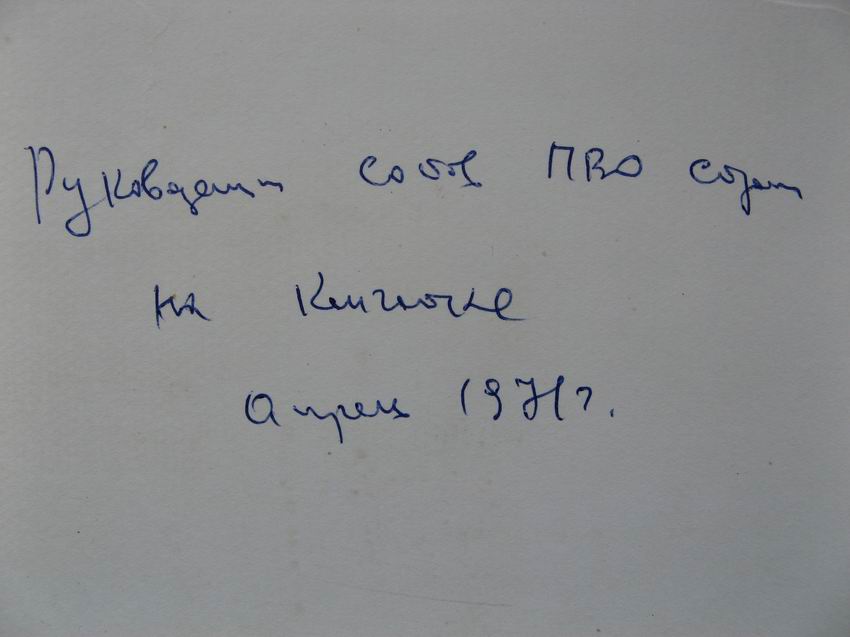 Руководящий состав ПВО страны
на
Апрель 1971 г.